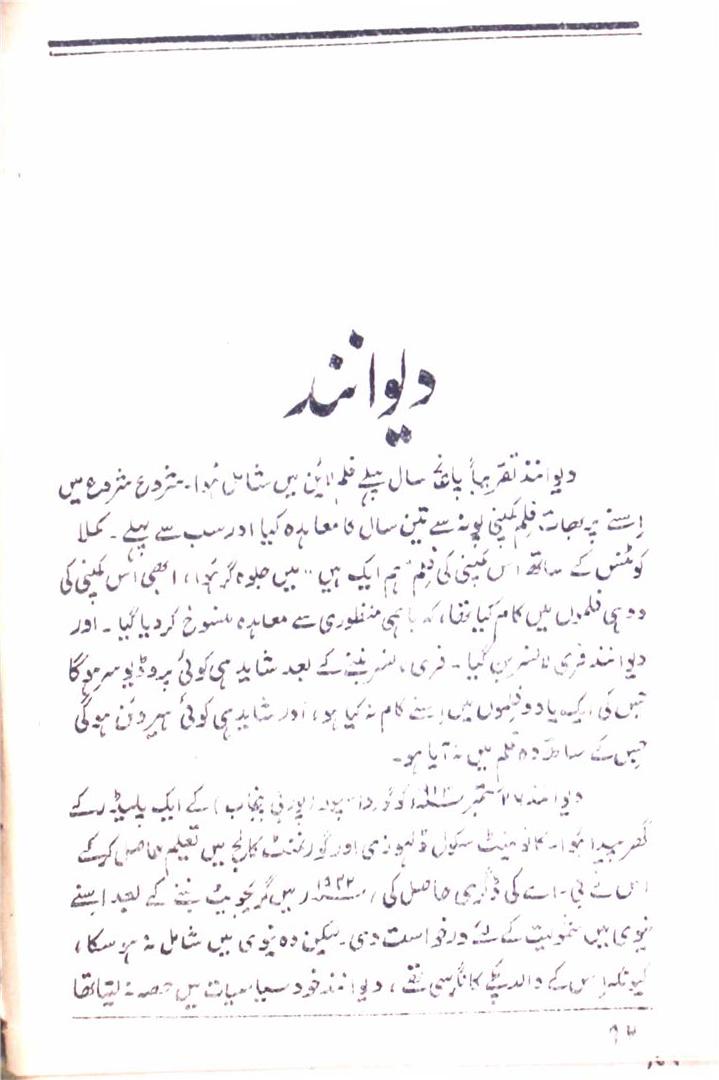 دیوانند
دیوانند تقریباً پانچ سال پہلے فلم لائین میں شامل ہُوا۔ شروع شروع میں
اِسنے پربھات فلم کمپنی پونہ سے تین سال کا معاہدہ کیا اور سب سے پہلے۔ کملا
کوٹنس کے ساتھ اس کمپنی کی فِلم "ہم ایک ہیں" میں جلوہ گر ہُوا، ابھی اس کمپنی کی
دو ہی فلموں میں کام کیا تھا، کہ باہمی منظوری سے معاہدہ منسوخ کر دیا گیا۔ اور
دیوانند فری لانسر بن گیا۔ فری لنسر بننے کے بعد شاید ہی کوئی پروڈیوسر ہوگا
جس کی ایک یا دو فلموں میں اِسنے کام نہ کیا ہو، اور شاید ہی کوئی ہیروئن ہوگی
جِس کے ساتھ وہ فلم میں نہ آیا ہو۔
دیوانند ۲۶ ستمبر کو گورداسپور (پوربی پنجاب) کے ایک پلیڈر کے
گھر پیدا ہُوا۔ کانوینٹ سکول ڈلہوزی اور گورنمنٹ کالج میں تعلیم حاصل کرکے
اس نے بی۔اے کی ڈگری حاصل کی، میں گریجویٹ بننے کے بعد اِسنے
نیوی میں شمولیت کے لئے درخواست دی۔ لیکن وہ نیوی میں شامل نہ ہو سکا،
کیونکہ اِس کے والد پکے کانگرسی تھے، دیوانند خود سیاسیات میں حصہ نہ لیتا تھا